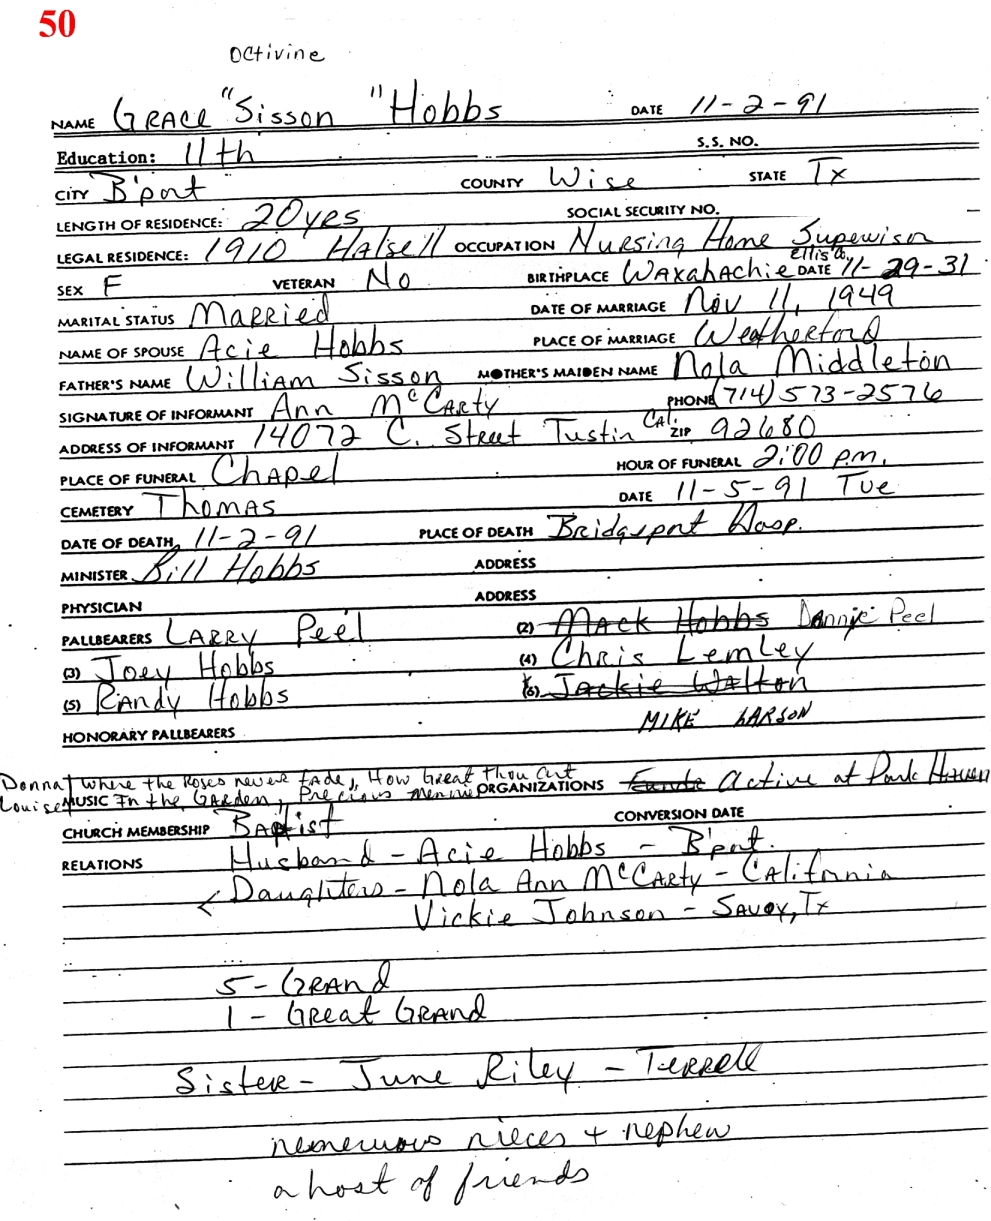 50
Octivine
NAME GRACE "Sisson" Hobbs DATE 11-2-91
Education: 11th S.S. NO.
CITY B'port COUNTY Wise STATE Tx
LENGTH OF RESIDENCE: 20 yrs SOCIAL SECURITY NO.
LEGAL RESIDENCE: 1910 Halsell OCCUPATION Nursing Home Supervisor
SEX F VETERAN No BIRTHPLACE Waxahachie Ellis Co, DATE 11-29-31
MARITAL STATUS Married DATE OF MARRIAGE Nov 11, 1949
NAME OF SPOUSE Acie Hobbs PLACE OF MARRIAGE Weatherford
FATHER'S NAME William Sisson MOTHER'S MAIDEN NAME Nola Middleton
SIGNATURE OF INFORMANT Ann McCarty PHONE (714) 573-2576
ADDRESS OF INFORMANT 14072 C. Street Tustin Cal. ZIP 92680
PLACE OF FUNERAL Chapel HOUR OF FUNERAL 2:00 p.m.
CEMETERY Thomas DATE 11-5-91 Tue
DATE OF DEATH, 11-2-91 PLACE OF DEATH Bridgeport Hosp.
MINISTER Bill Hobbs ADDRESS
PHYSICIAN ADDRESS
PALLBEARERS Larry Peel (2) Mack Hobbs Donnie Peel
(3) Joey Hobbs (4) Chris Lemley
(5) Randy Hobbs (6) Jackie Walton
MIKE LARSON
HONORARY PALLBEARERS
Donna Where the Roses never fade, How Great Thou Art
Louise MUSIC In the Garden, Precious Memories ORGANIZATIONS Active at Park Haven
CHURCH MEMBERSHIP Baptist CONVERSION DATE
RELATIONS Husband - Acie Hobbs - B'port.
Daughters - Nola Ann McCarty - California
Vickie Johnson - Savoy, Tx
5 - Grand
1 - Great Grand
Sister - June Riley - Terrell
nemeruous nieces + nephew
a host of friends